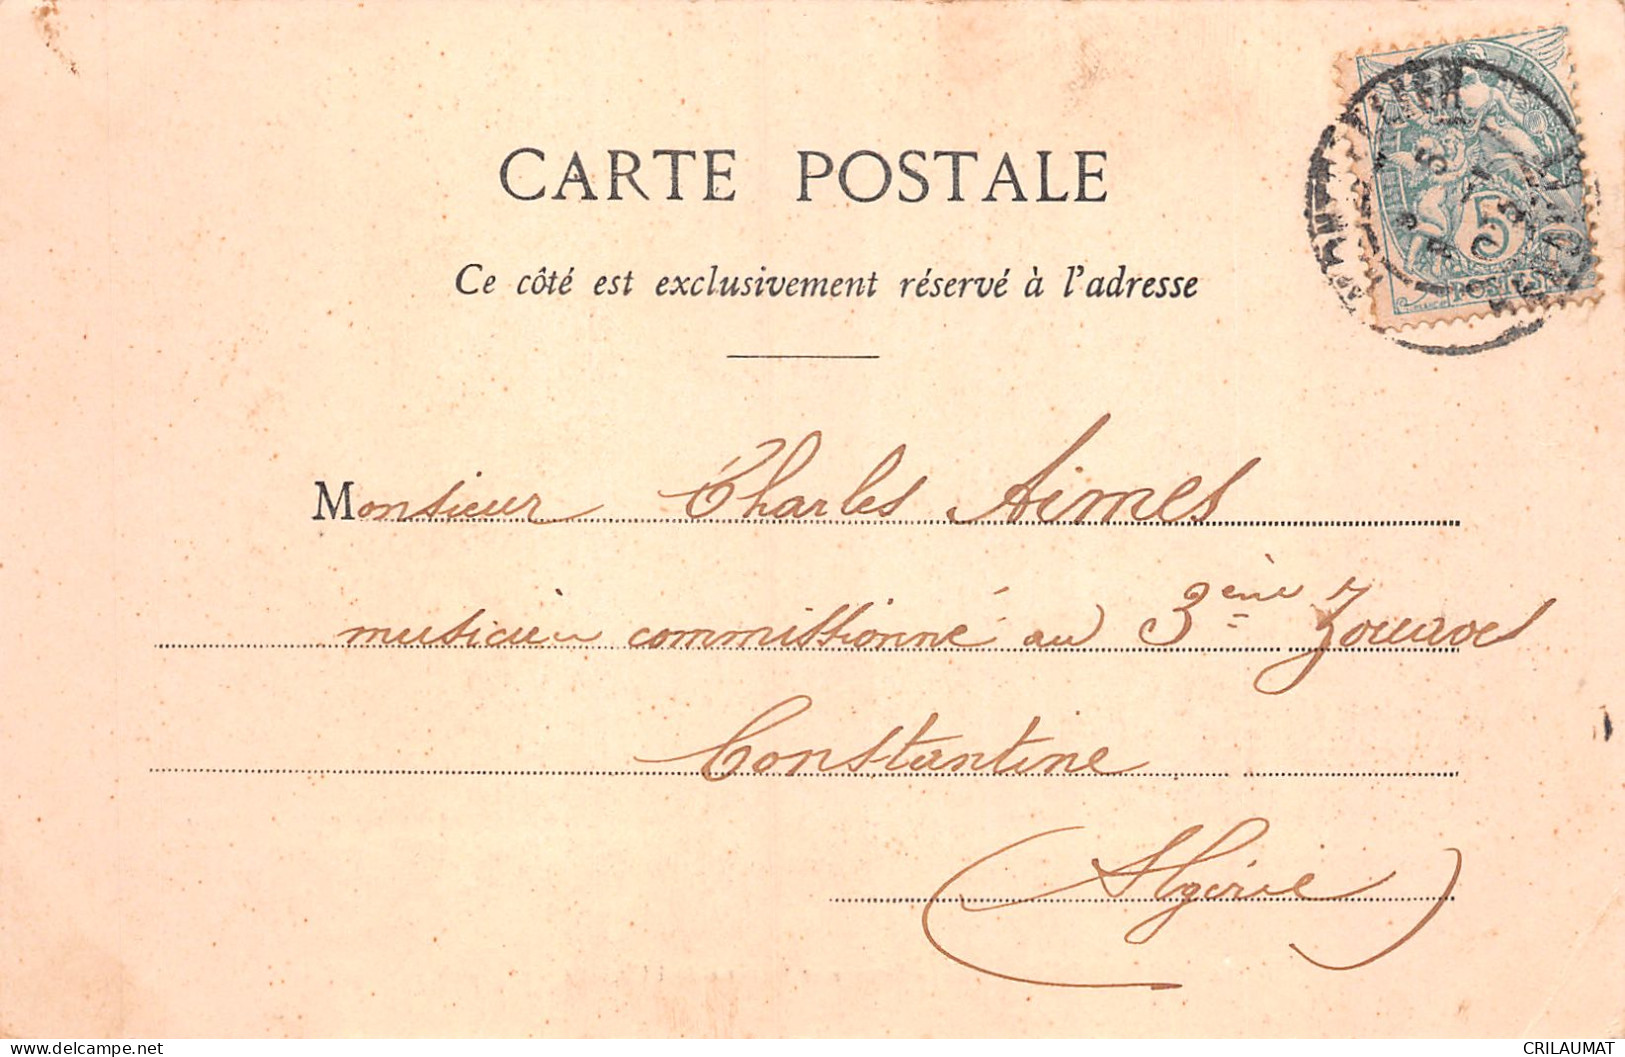 CARTE POSTALE
Ce côté est exclusivement réservé à l'adresse
5
POSTES
Monsieur Charles Aimes
musicien commissionné au 3ème Zouaves
Constantine
(Algérie)
www.delcampe.net
CRILAUMAT